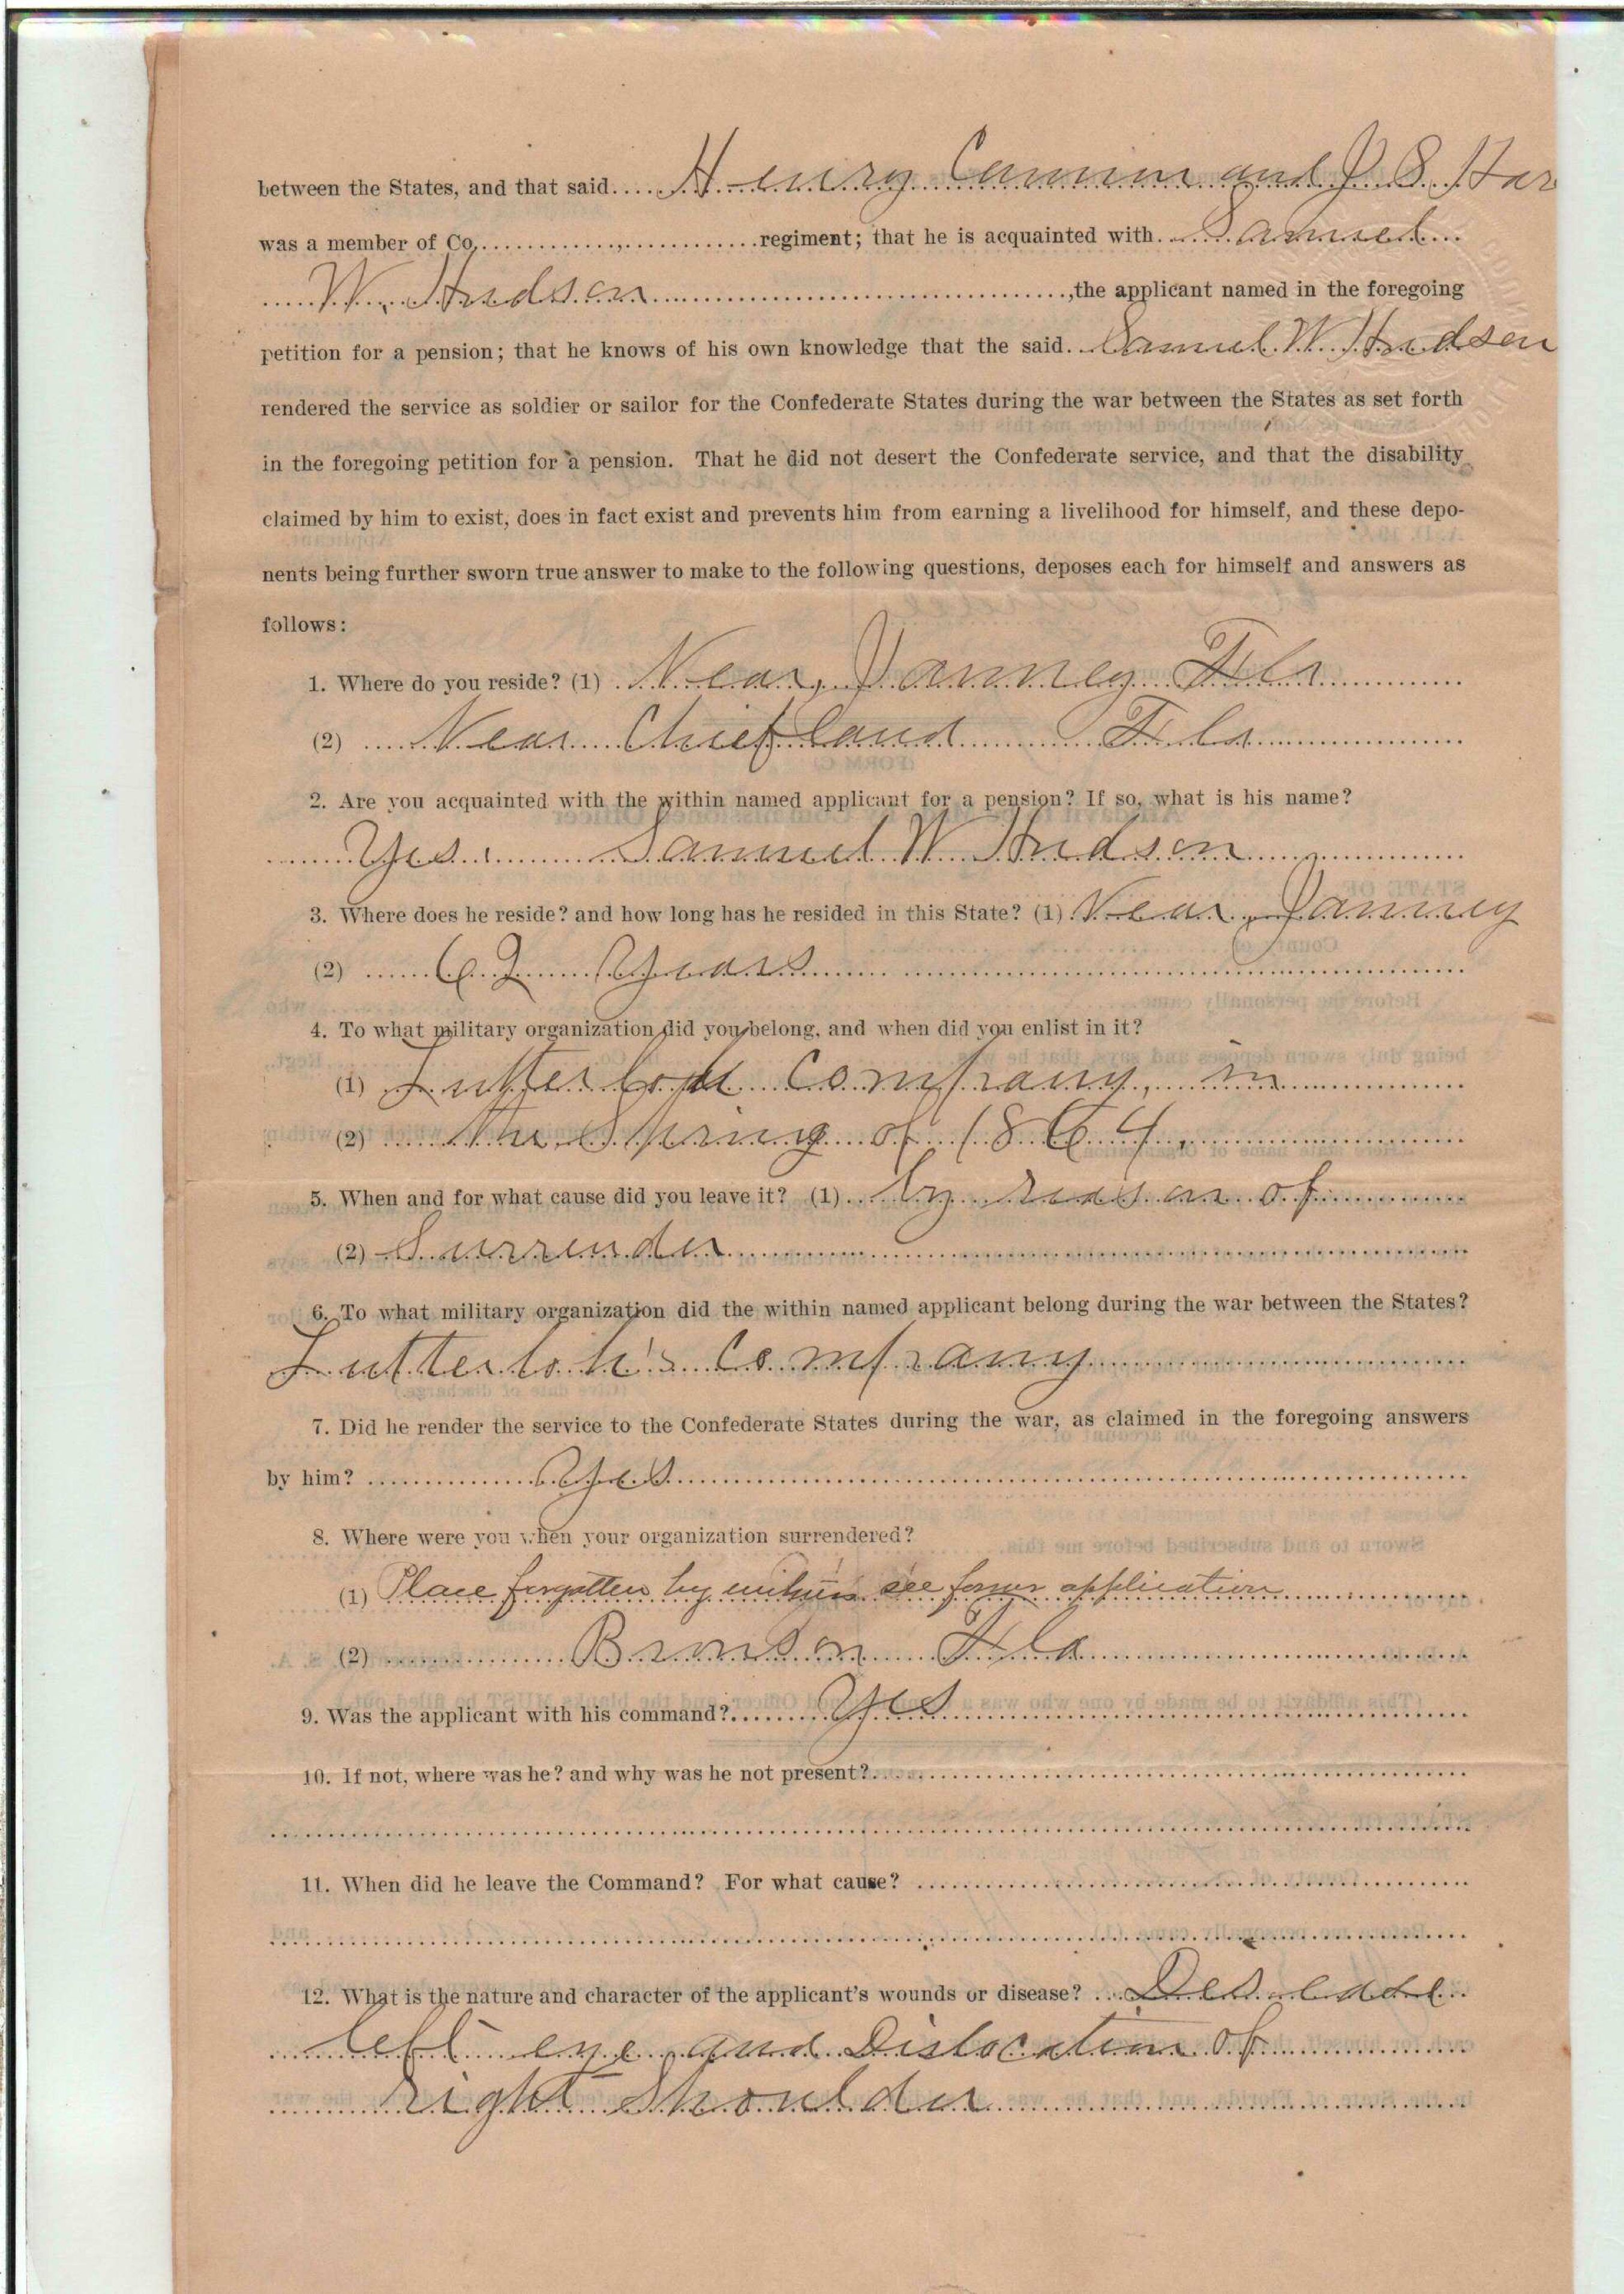 between the States, and that said Henry Cannon and J. S. Har
was a member of Co. , regiment; that he is acquainted with Samuel
W. Hudson ,the applicant named in the foregoing
petition for a pension; that he knows of his own knowledge that the said Samuel W. Hudson
rendered the service as soldier or sailor for the Confederate States during the war between the States as set forth
in the foregoing petition for a pension. That he did not desert the Confederate service, and that the disability
claimed by him to exist, does in fact exist and prevents him from earning a livelihood for himself, and these depo-
nents being further sworn true answer to make to the following questions, deposes each for himself and answers as
follows:
1. Where do you reside? (1) Near, Janney Fla
(2) Near Chiefland Fla
2. Are you acquainted with the within named applicant for a pension? If so, what is his name?
Yes. Samuel W Hudson
3. Where does he reside? and how long has he resided in this State? (1) Near, Janney
(2) 62 Years
4. To what military organization did you belong, and when did you enlist in it?
(1) Lutterloh Company, in
(2) the Spring of 1864.
5. When and for what cause did you leave it? (1) by reason of
(2) Surrender
6. To what military organization did the within named applicant belong during the war between the States?
Lutterloh's Company
7. Did he render the service to the Confederate States during the war, as claimed in the foregoing answers
by him? Yes
8. Where were you when your organization surrendered?
(1) Place forgotten by witness see former application
(2) Bronson Fla
9. Was the applicant with his command? Yes
10. If not, where was he? and why was he not present?
11. When did he leave the Command? For what cause?
12. What is the nature and character of the applicant's wounds or disease?
left eye and Dislocation of
right shoulder